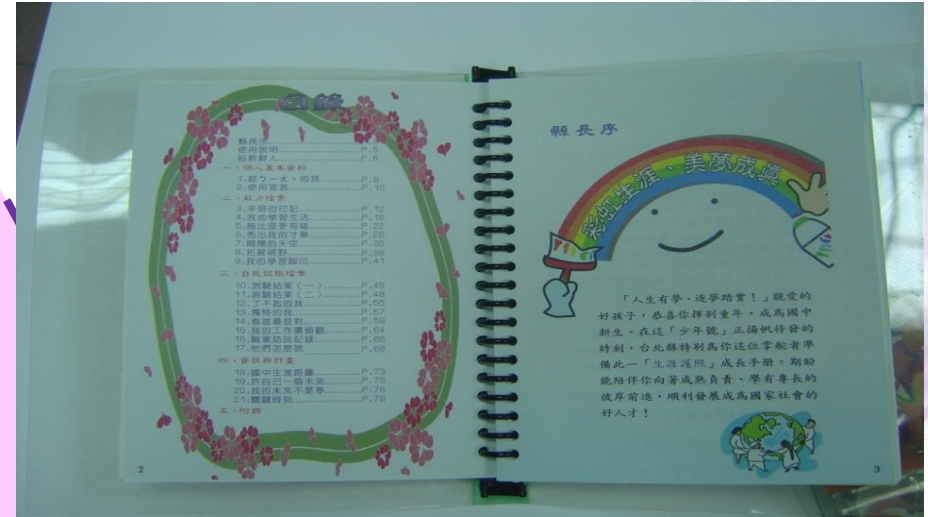 目錄
縣長序
使用說明………P.5
給新鮮人………P.6
一、個人基本資料
1.認ㄅㄧㄤˋ的我………P.8
2.使用宣言………P.10
二、能力檔案
3.辛勞的印記………P.12
4.我的學習生活………P.16
5.施比受更有福………P.22
6.秀出我的才華………P.26
7.開闊的天空………P.35
8.拓展視野………P.38
9.我的學習腳印………P.41
三、自我試探檔案
10.測驗結果（一）………P.45
11.測驗結果（二）………P.48
12.了不起的我………P.55
13.獨特的我………P.57
14.看誰最登對………P.59
15.我的工作價值觀………P.64
16.職業訪談記錄………P.66
17.他們怎麼說………P.68
四、資訊與計畫
18.國中生進路圖………P.73
19.許自己一個未來………P.75
20.我的未來不是夢………P.76
21.關鍵時刻………P.78
五、附錄
2
縣長序
彩虹生涯、美夢成真
「人生有夢、逐夢踏實！」親愛的
好孩子，恭喜你揮別童年，成為國中
新生。在這「少年號」正揚帆待發的
時刻，台北縣特別為你這位掌舵者準
備此一「生涯護照」成長手冊，期盼
能陪伴你向著成熟負責、學有專長的
彼岸前進，順利發展成為國家社會的
好人才！
3